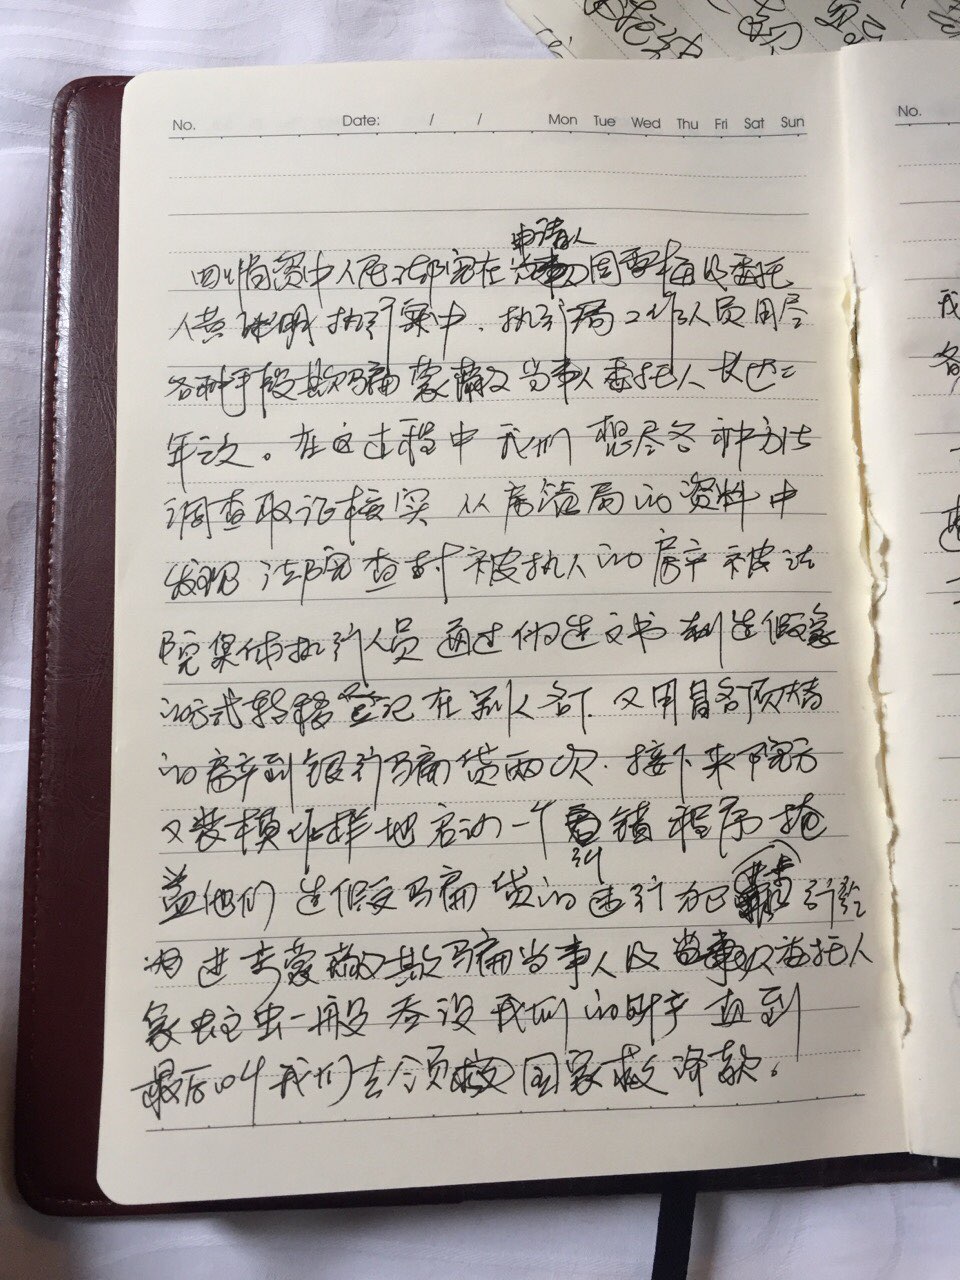 No. Date: / / Mon Tue Wed Thu Fri Sat Sun
No.
申请人
四川省资中人民法院在周雪梅及委托
人黄 执行案中,执行局工作人员用尽
各种手段欺骗蒙蔽当事人委托人长达二
年之久。在这过程中我们想尽各种方法
调查取证核实 从房管局的资料中
发现法院查封被执人的房产被法
院集体执行人员通过伪造文书制造假象
的方式转移登记在别人名下.又用冒名顶替
的房产到银行骗贷两次.接下来中院方
又装模作样地启动一个纠错程序掩
盖他们造假骗贷的违行为
进 蒙蔽欺骗当事人及委托人
象蛀虫一般吞没我们的财产直到
最后叫我们去领取国家救济款。
我
各